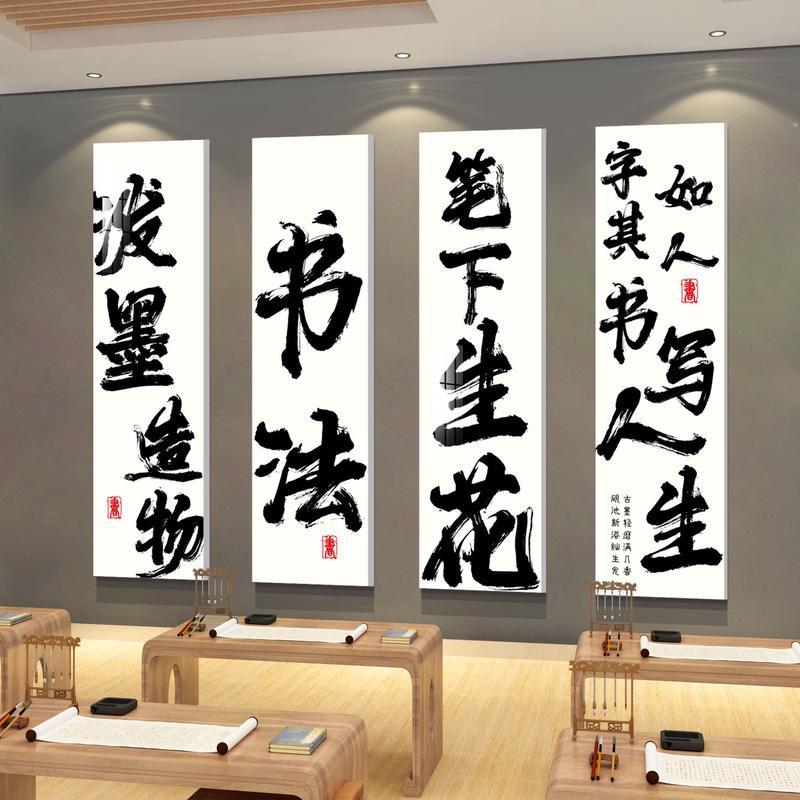 泼墨造物
書
书法
書
笔下生花
字如其人
書
书写人生
古墨轻磨满几香
砚池新浴灿生光